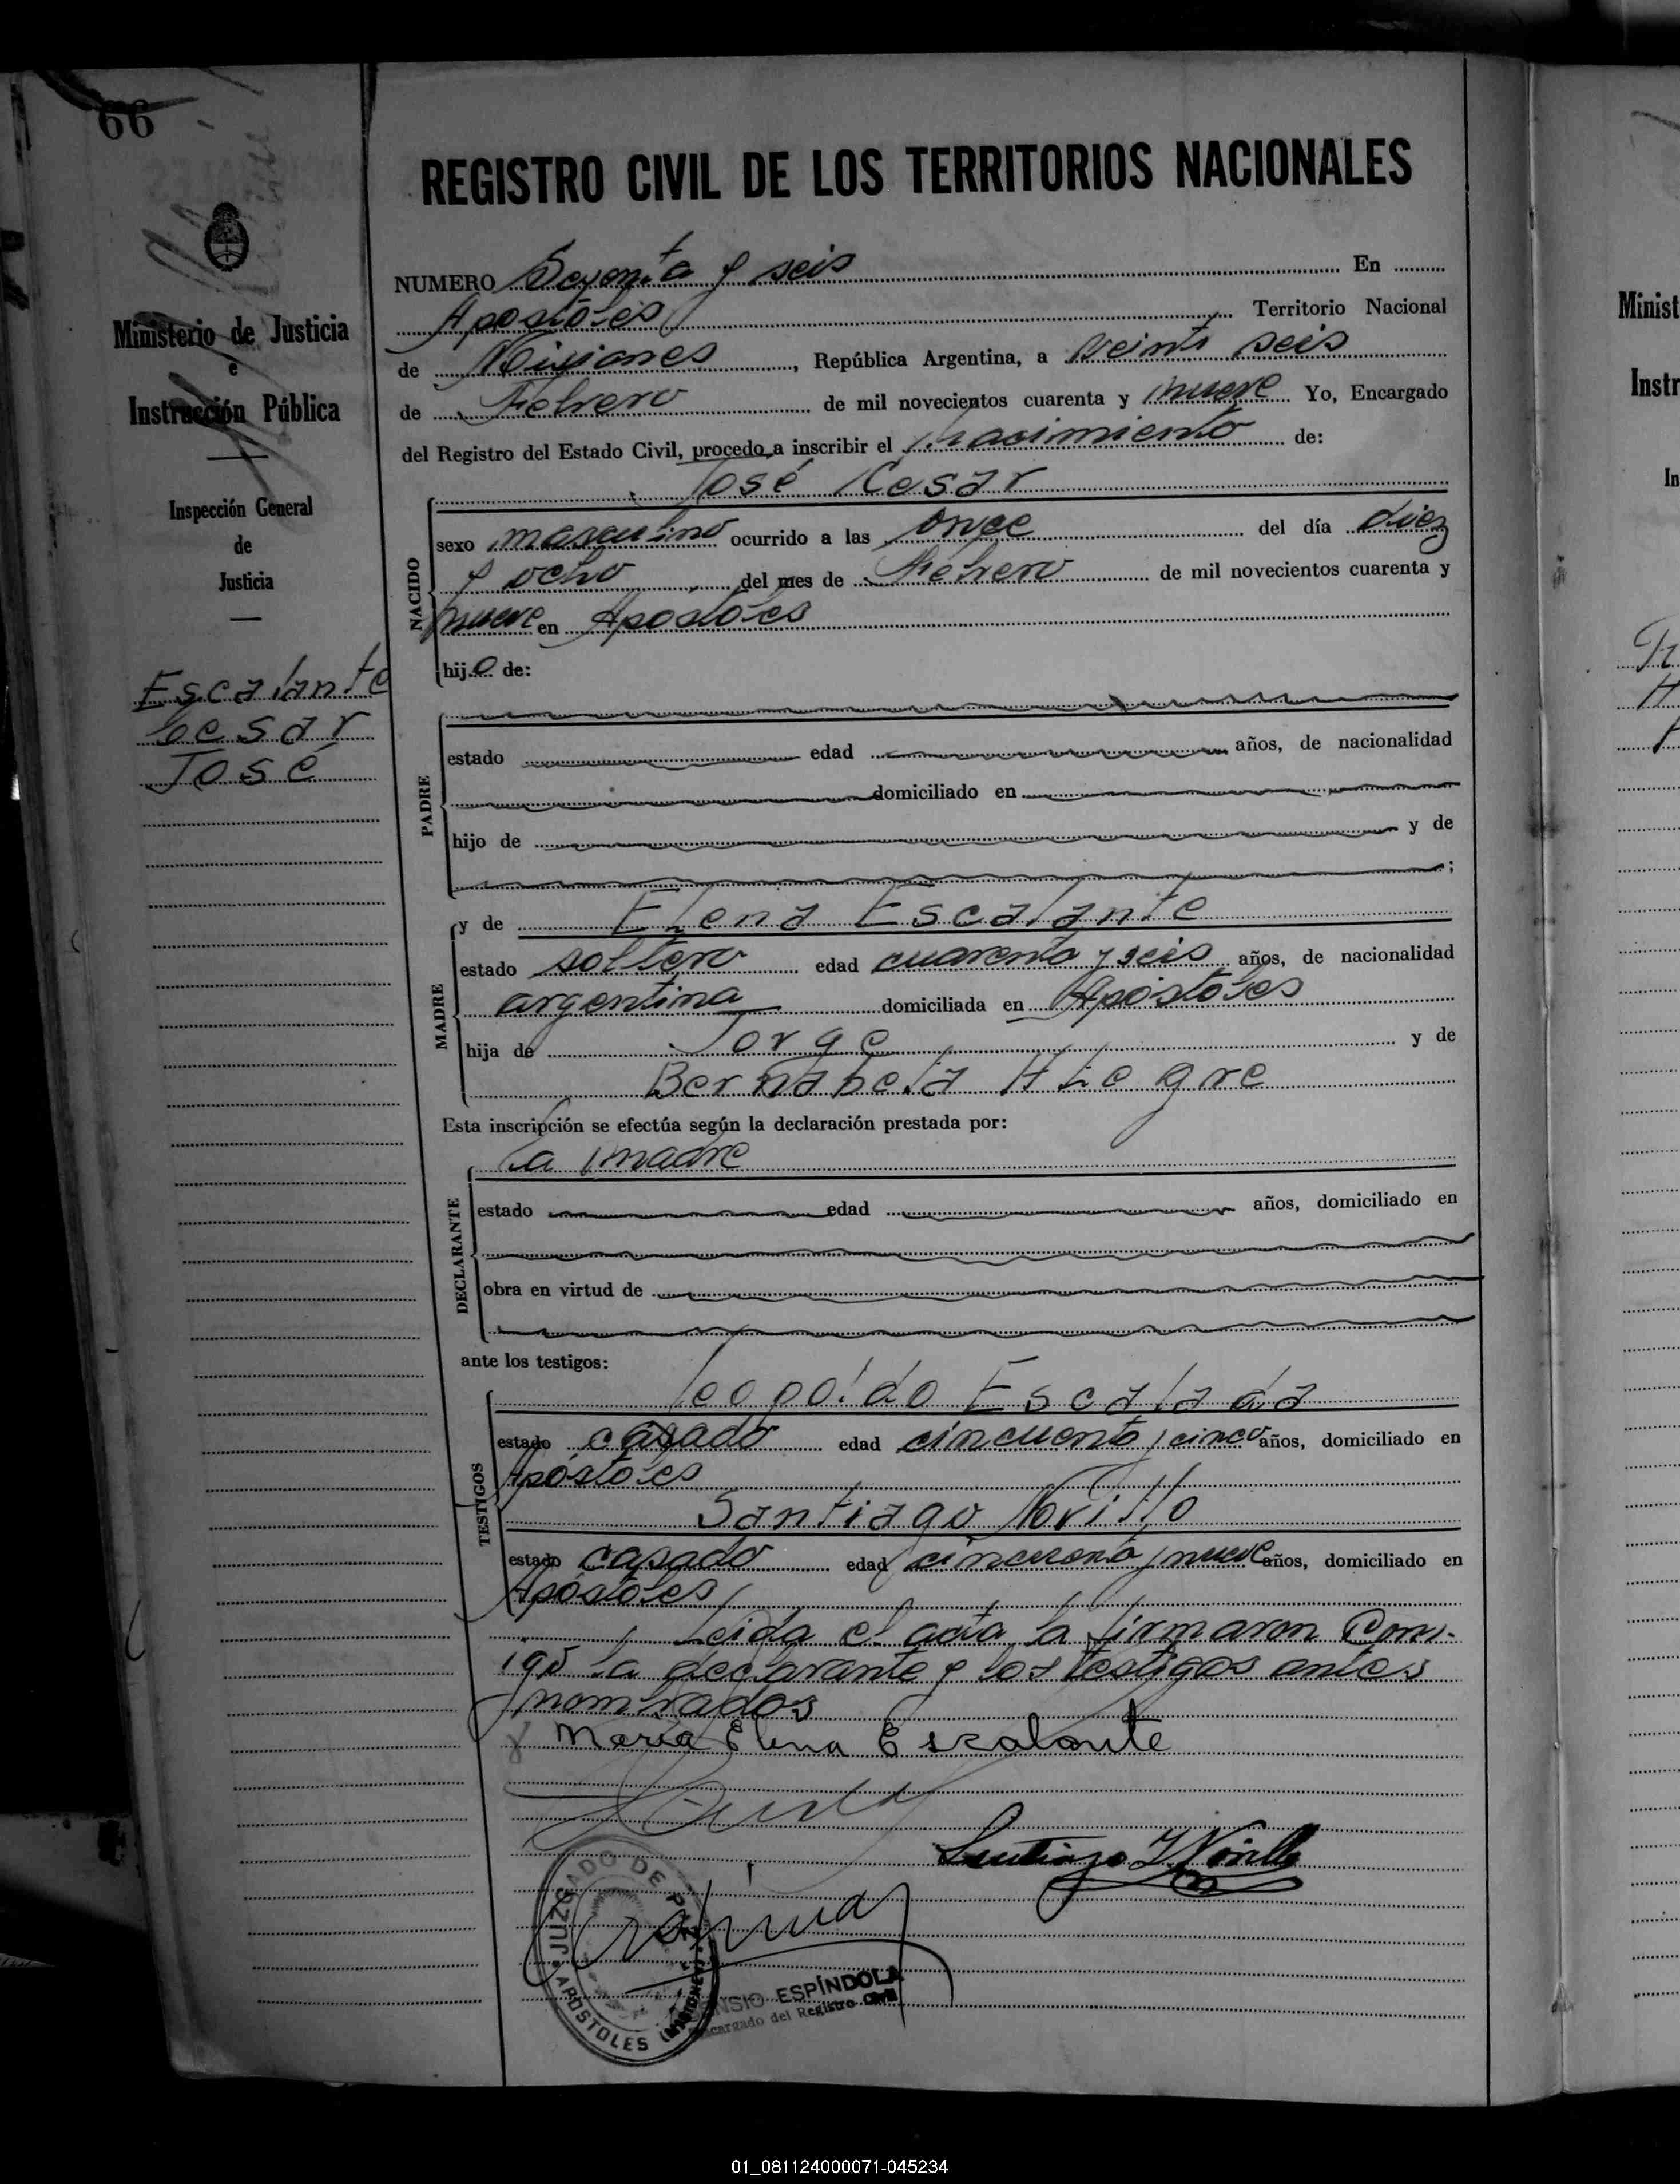 66
REGISTRO CIVIL DE LOS TERRITORIOS NACIONALES
Ministerio de Justicia
e
Instrucción Pública
Inspección General
de
Justicia
Escalante
Cesar
José
NUMERO Sesenta y seis En
Apostoles Territorio Nacional
de Misiones, República Argentina, a veinti seis
de Febrero de mil novecientos cuarenta y nueve Yo, Encargado
del Registro del Estado Civil, procedo a inscribir el nacimiento de:
José Cesar
NACIDO
sexo masculino ocurrido a las once del día diez
y ocho del mes de Febrero de mil novecientos cuarenta y
nueve en Apóstoles
hijo de:
PADRE
estado edad años, de nacionalidad
domiciliado en
hijo de y de
;
MADRE
y de Elena Escalante
estado soltera edad cuarenta y seis años, de nacionalidad
argentina domiciliada en Apóstoles
hija de Jorge y de
Bernabela Alegre
Esta inscripción se efectúa según la declaración prestada por:
la madre
DECLARANTE
estado edad años, domiciliado en
obra en virtud de
ante los testigos:
TESTIGOS
Leopoldo Escalada
estado casado edad cincuenta y cinco años, domiciliado en
Apóstoles
Santiago Norillo
estado casado edad cincuenta y nueve años, domiciliado en
Apóstoles
Leida el acta la firmaron Con-
igo la declarante y los testigos antes
nombrados
María Elena Escalante
Santiago Norillo
JUZGADO DE PAZ
APOSTOLES (MISIONES)
ESPÍNDOLA
Encargado del Registro Civil
Minist
Instr
In
01_081124000071-045234